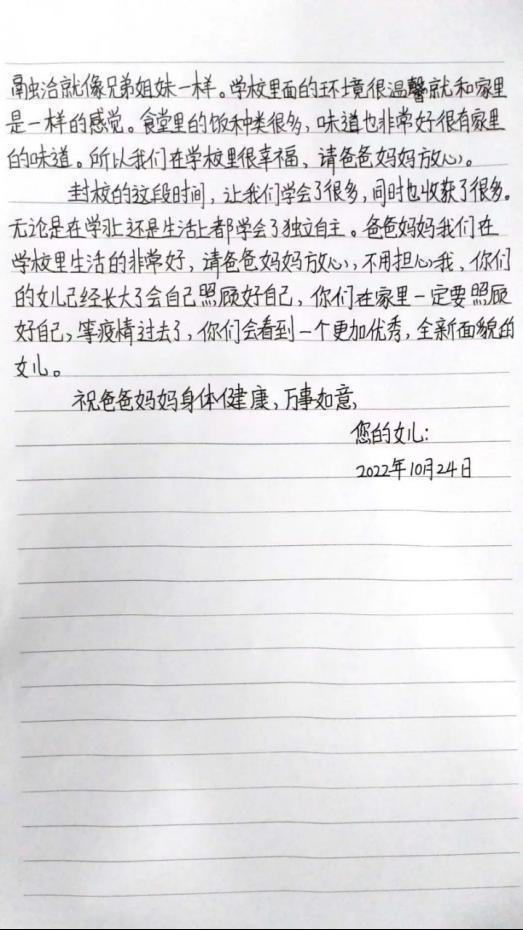 融洽就像兄弟姐妹一样。学校里面的环境很温馨就和家里
是一样的感觉。食堂里的饭种类很多，味道也非常好很有家里
的味道。所以我们在学校里很幸福，请爸爸妈妈放心。
封校的这段时间，让我们学会了很多，同时也收获了很多。
无论是在学业上还是生活上都学会了独立自主。爸爸妈妈我们在
学校里生活的非常好，请爸爸妈妈放心，不用担心我，你们
的女儿已经长大了会自己照顾好自己，你们在家里一定要照顾
好自己，等疫情过去了，你们会看到一个更加优秀，全新面貌的
女儿。
祝爸爸妈妈身体健康，万事如意，
您的女儿：
2022年10月24日